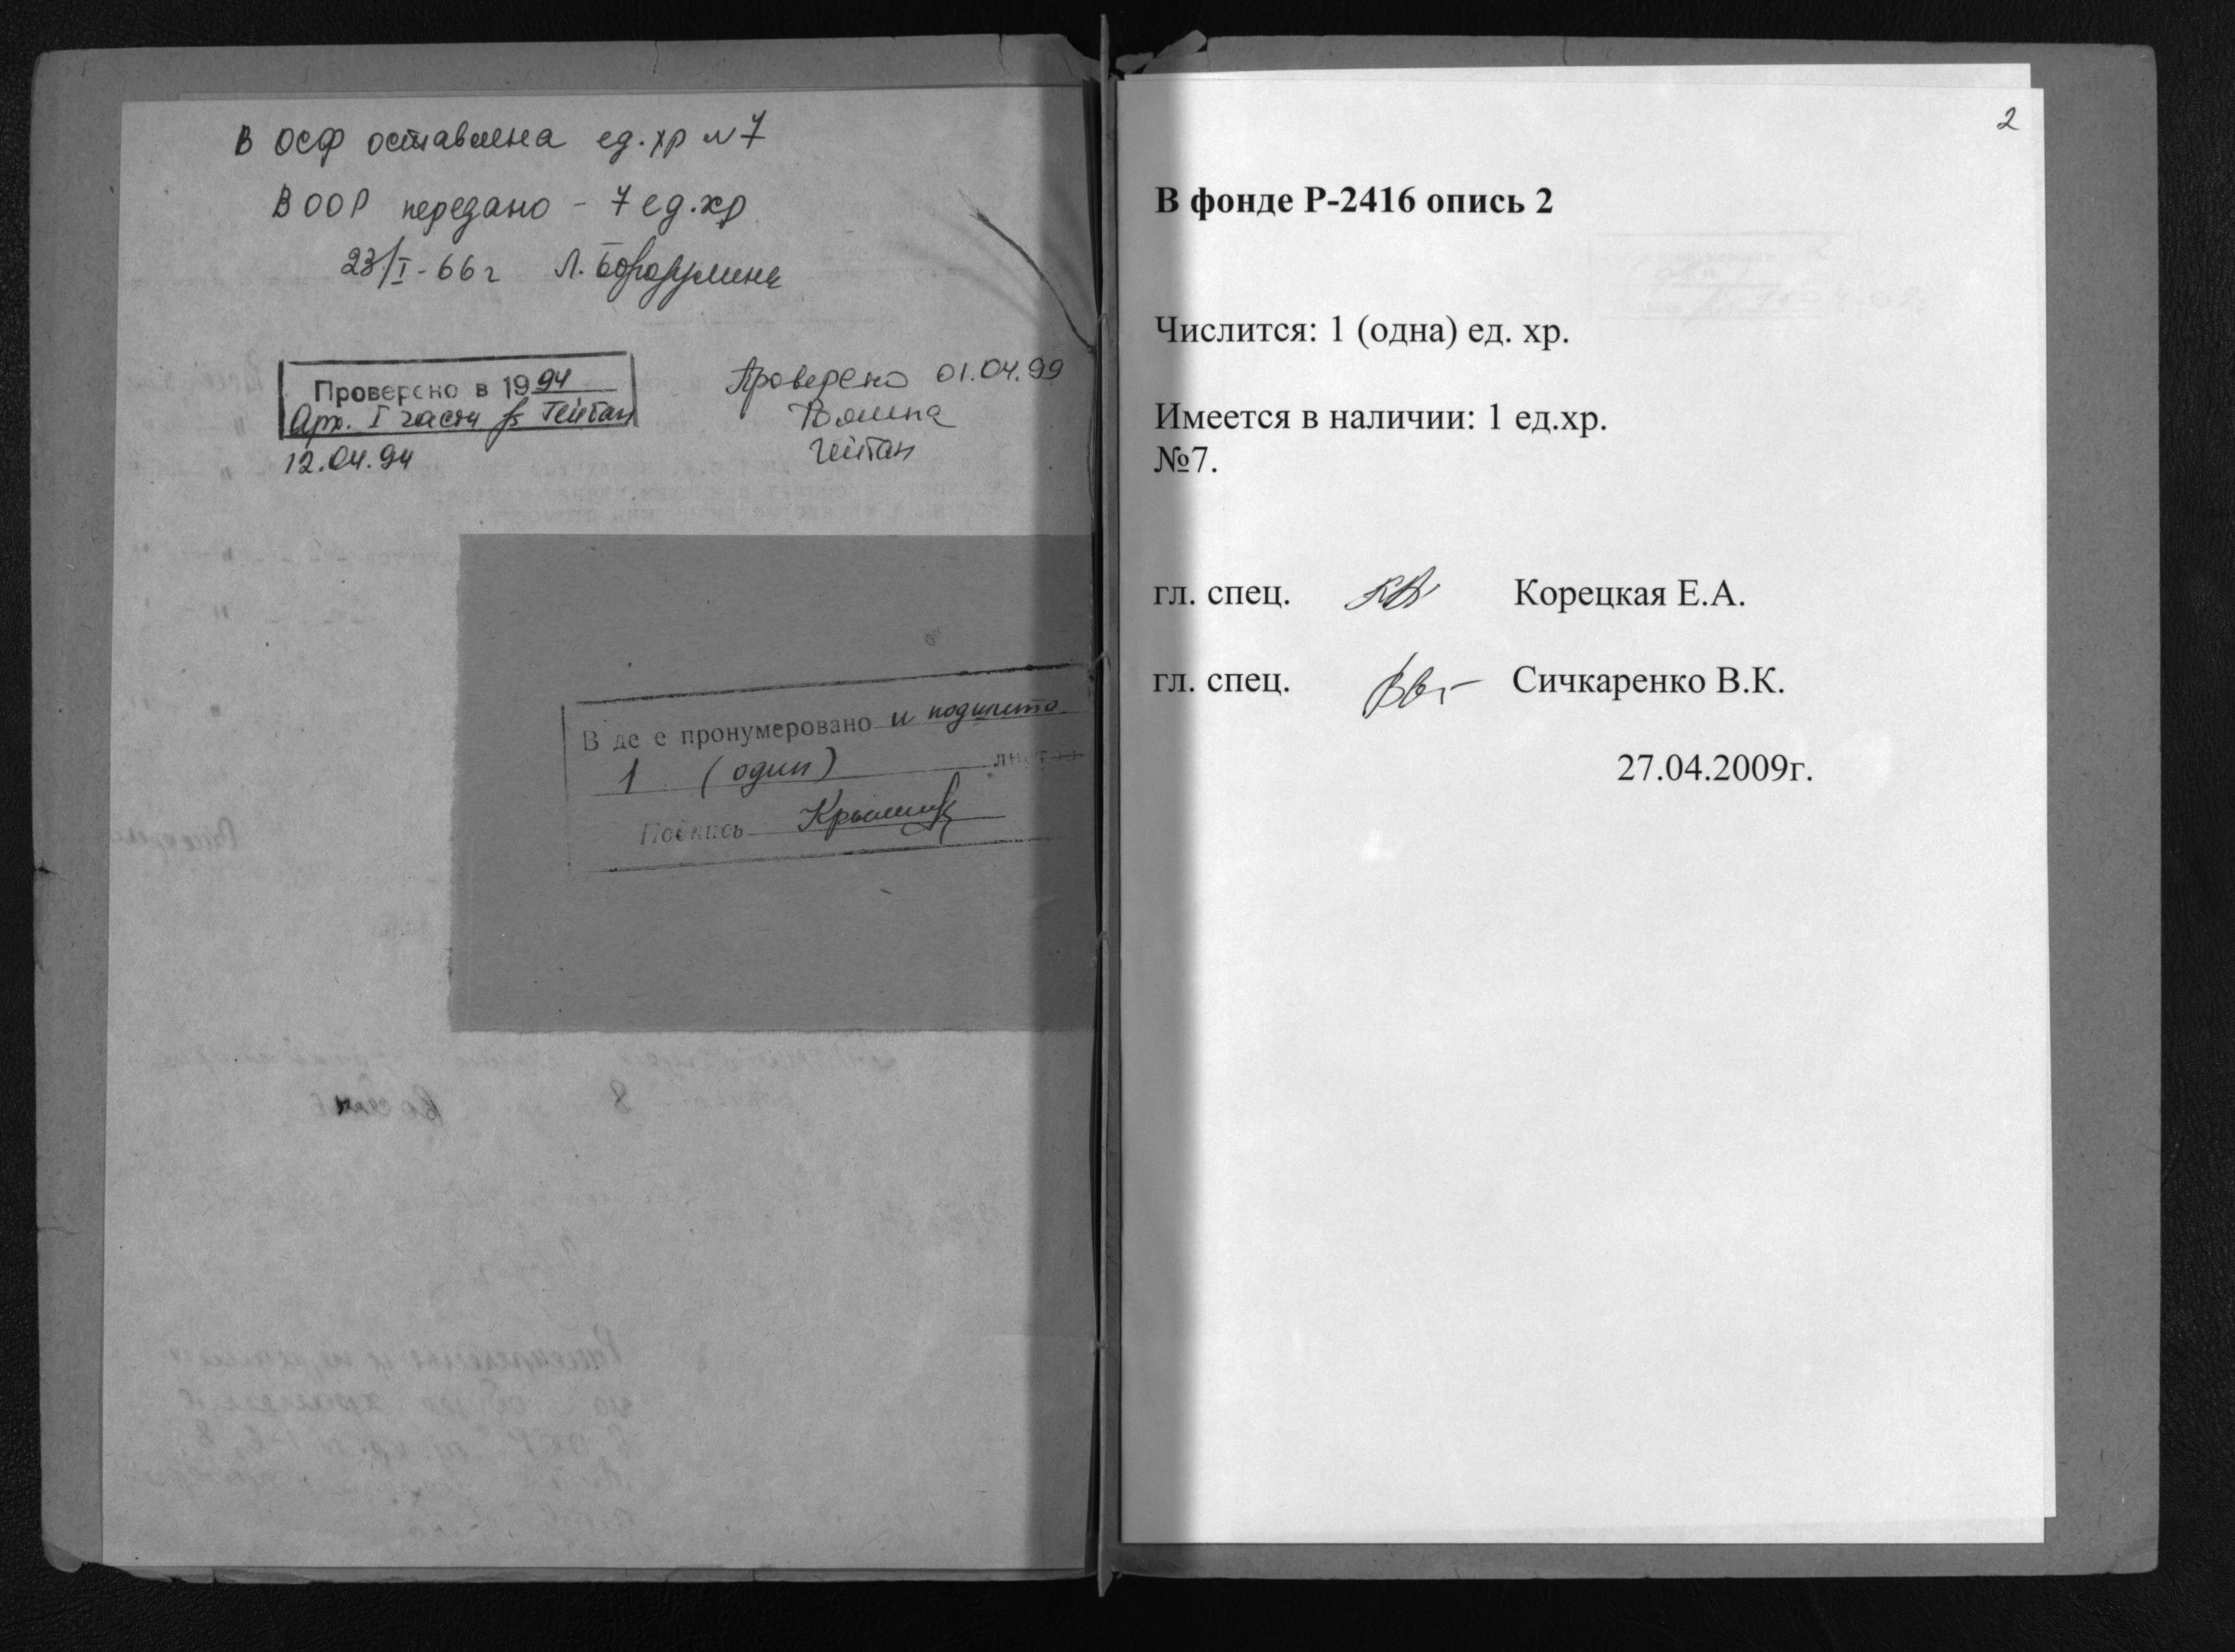 В ОСФ оставлена ед. хр №7
В ООР передано - 7 ед. хр
23/I-66г Л. Бородулина
Проверено в 1994
Арх. I части Гейтан
12.04.94
Проверено 01.04.99
Гейтан
В де е пронумеровано и подшито
1 (один) листов
Подпись
2
В фонде Р-2416 опись 2
Числится: 1 (одна) ед. хр.
Имеется в наличии: 1 ед.хр.
№7.
гл. спец. Корецкая Е.А.
гл. спец. Сичкаренко В.К.
27.04.2009г.